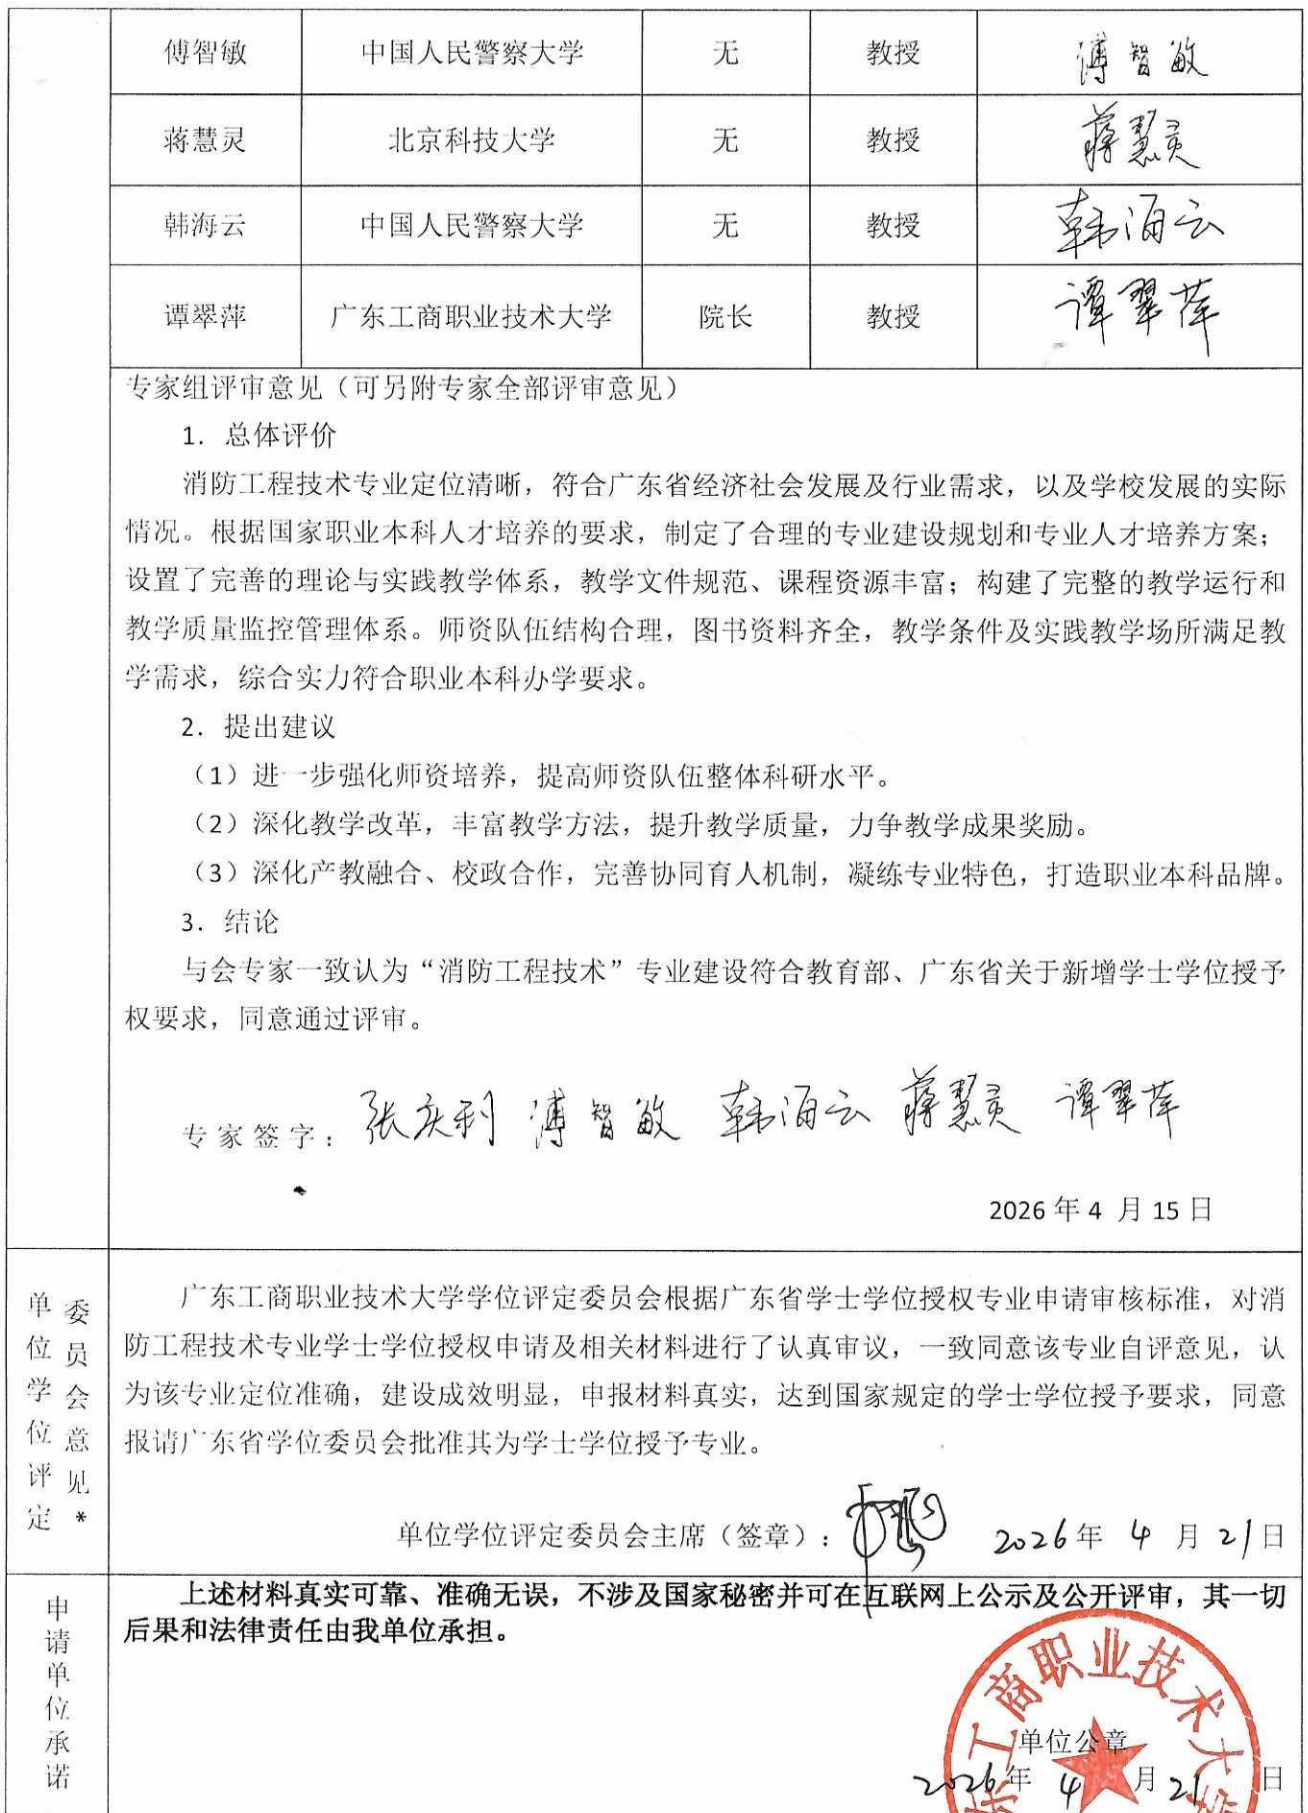 傅智敏 中国人民警察大学 无 教授 傅智敏
蒋慧灵 北京科技大学 无 教授 蒋慧灵
韩海云 中国人民警察大学 无 教授 韩海云
谭翠萍 广东工商职业技术大学 院长 教授 谭翠萍
专家组评审意见（可另附专家全部评审意见）
1. 总体评价
消防工程技术专业定位清晰，符合广东省经济社会发展及行业需求，以及学校发展的实际
情况。根据国家职业本科人才培养的要求，制定了合理的专业建设规划和专业人才培养方案；
设置了完善的理论与实践教学体系，教学文件规范、课程资源丰富；构建了完整的教学运行和
教学质量监控管理体系。师资队伍结构合理，图书资料齐全，教学条件及实践教学场所满足教
学需求，综合实力符合职业本科办学要求。
2. 提出建议
（1）进一步强化师资培养，提高师资队伍整体科研水平。
（2）深化教学改革，丰富教学方法，提升教学质量，力争教学成果奖励。
（3）深化产教融合、校政合作，完善协同育人机制，凝练专业特色，打造职业本科品牌。
3. 结论
与会专家一致认为“消防工程技术”专业建设符合教育部、广东省关于新增学士学位授予
权要求，同意通过评审。
专家签字：张庆利 傅智敏 韩海云 蒋慧灵 谭翠萍
2026 年 4 月 15 日
单位学位评定
委员会意见*
广东工商职业技术大学学位评定委员会根据广东省学士学位授权专业申请审核标准，对消
防工程技术专业学士学位授权申请及相关材料进行了认真审议，一致同意该专业自评意见，认
为该专业定位准确，建设成效明显，申报材料真实，达到国家规定的学士学位授予要求，同意
报请广东省学位委员会批准其为学士学位授予专业。
单位学位评定委员会主席（签章）： 2026 年 4 月 21 日
申请单位承诺
上述材料真实可靠、准确无误，不涉及国家秘密并可在互联网上公示及公开评审，其一切
后果和法律责任由我单位承担。
工商职业技术大
单位公章
2026 年 4 月 21 日